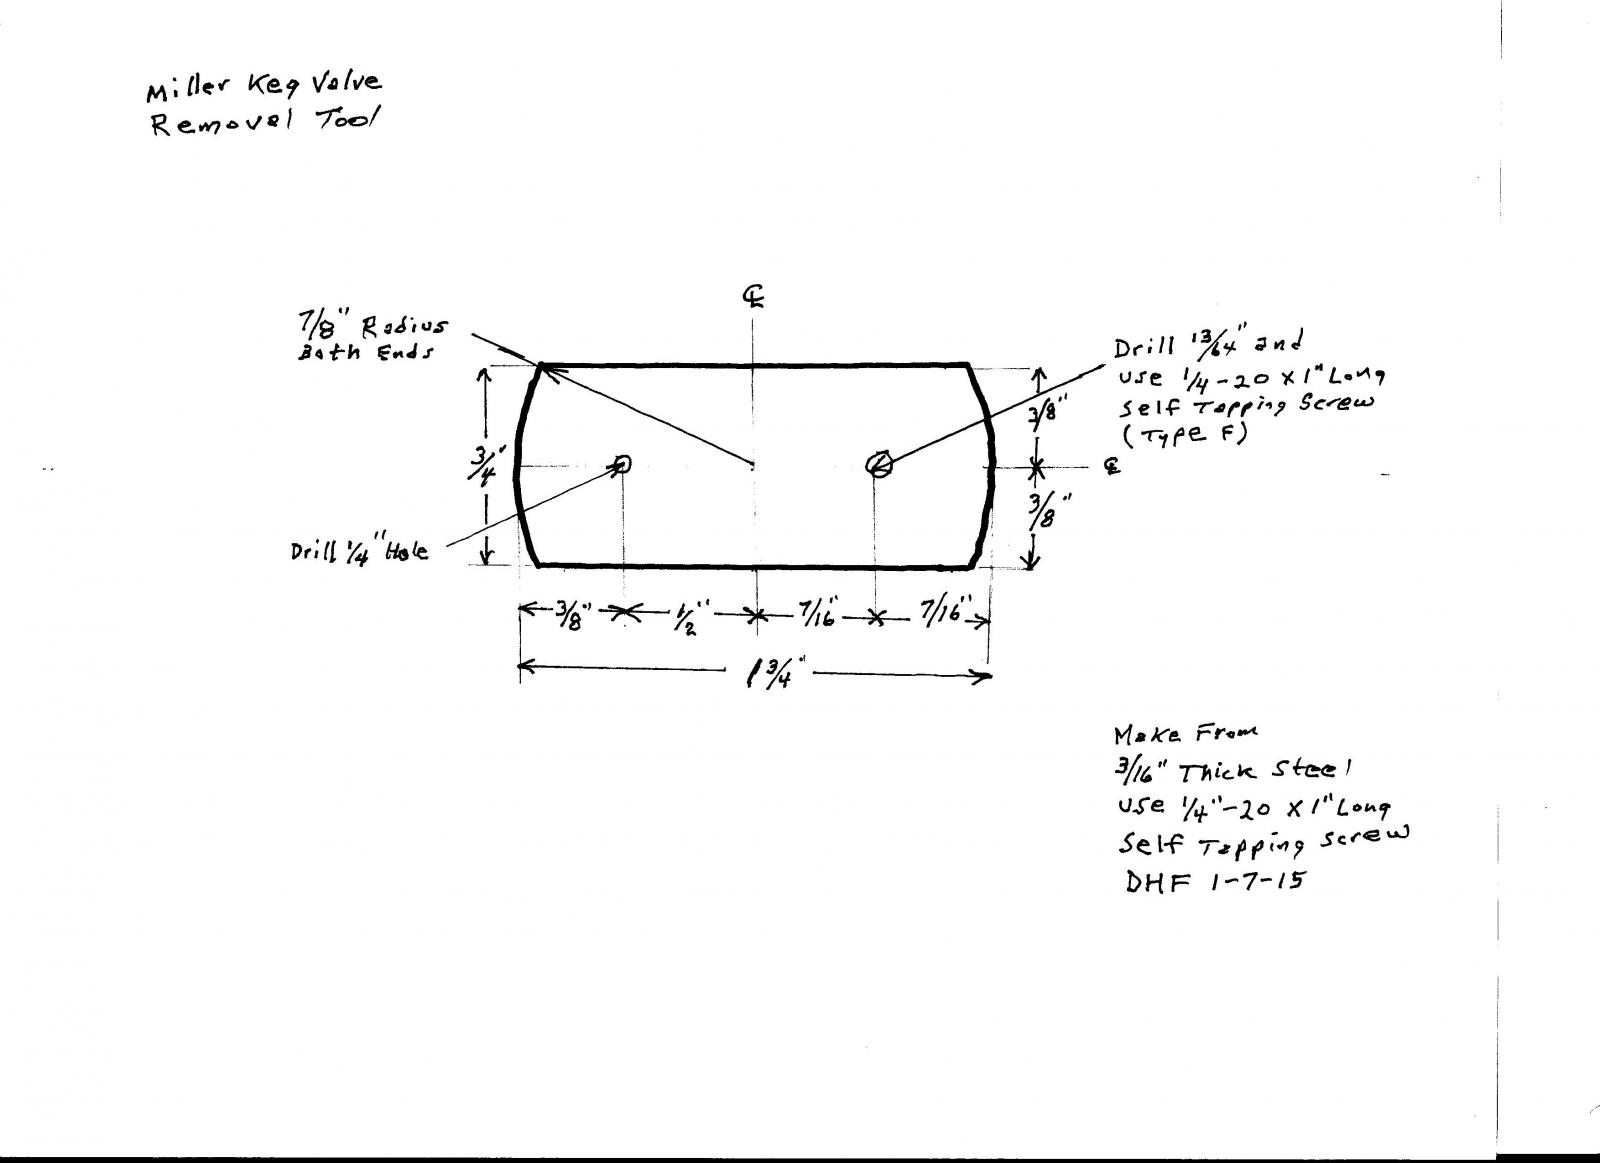 Miller Keg Valve
Removal Tool
℄
7/8" Radius
Both Ends
Drill 13/64" and
use 1/4-20 x 1" Long
Self Tapping Screw
(Type F)
3/8"
3/4"
℄
3/8"
Drill 1/4" Hole
3/8" 1/2" 7/16" 7/16"
1 3/4"
Make From
3/16" Thick Steel
use 1/4"-20 x 1" Long
Self Tapping Screw
DHF 1-7-15